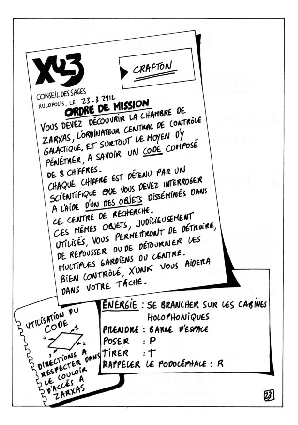 XU3
CRAFTON
CONSEIL DES SAGES
XULOPOLIS, LE 23.3.2912
ORDRE DE MISSION
VOUS DEVEZ DÉCOUVRIR LA CHAMBRE DE
ZARXAS, L'ORDINATEUR CENTRAL DE CONTRÔLE
GALACTIQUE, ET SURTOUT LE MOYEN D'Y
PÉNÉTRER, A SAVOIR UN CODE COMPOSÉ
DE 8 CHIFFRES.
CHAQUE CHIFFRE EST DÉTENU PAR UN
SCIENTIFIQUE QUE VOUS DEVEZ INTERROGER
A L'AIDE D'UN DES OBJETS DISSÉMINÉS DANS
CE CENTRE DE RECHERCHE.
CES MÊMES OBJETS, JUDICIEUSEMENT
UTILISÉS, VOUS PERMETTRONT DE DÉTRUIRE,
DE REPOUSSER OU DE DÉTOURNER LES
MULTIPLES GARDIENS DU CENTRE.
BIEN CONTRÔLÉ, XUNK VOUS AIDERA
DANS VOTRE TÂCHE.
UTILISATION DU
CODE
DIRECTIONS A
RESPECTER DANS
LE COULOIR
D'ACCÈS A
ZARXAS
ÉNERGIE : SE BRANCHER SUR LES CABINES
HOLOPHONIQUES
PRENDRE : BARRE D'ESPACE
POSER : P
TIRER : T
RAPPELER LE PODOCÉPHALE : R